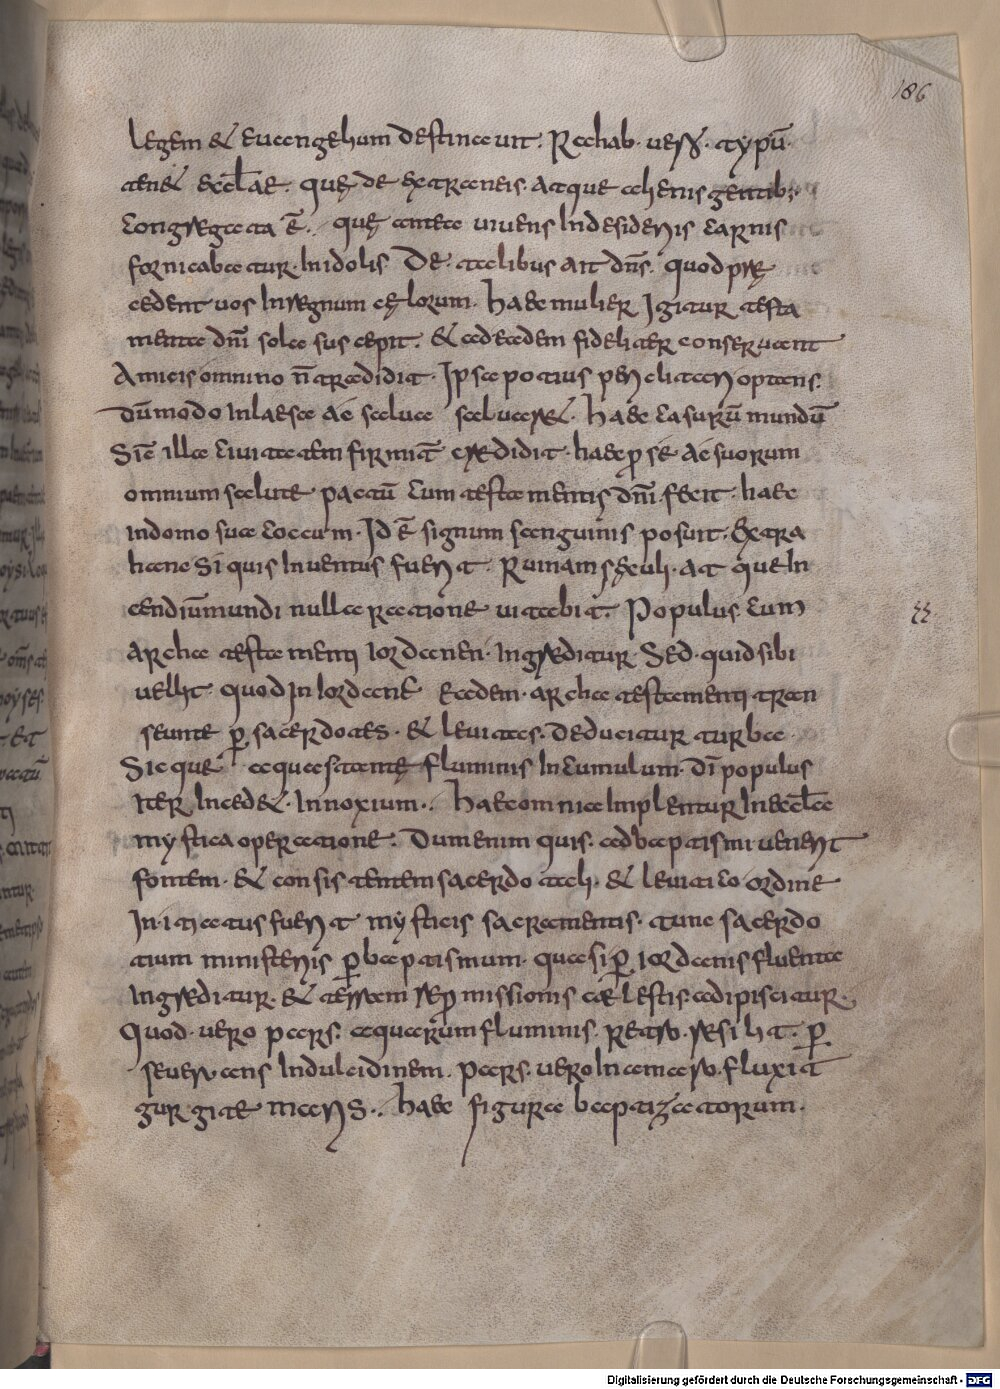 186
legem & euangelium destinauit. Rachab. uero. typū.
ten& eccl̄ae. que de extraneis. atque alienis gentib;.
congregata ē.. quę ante uiuens In desideriis carnis
fornicabatur. In idolis De. talibus ait dn̄s. quod prę
cedent uos In regnum cęlorum. haec mulier Igitur testa
menta dn̄i sola suscepit. & ad eadem fideliter conseruauit
Amicis omnino n̄ tradidit. Ipsa potius periclitari optans.
dūmodo Inlaesa ac salua saluar&. haec casurū mundū
Sic illa ciuitatem firmit̄ credidit. haec p se ac suorum
omnium salute pactū cum testamentis dn̄i fecit. haec
In domo sua coccum. Id ē signum sanguinis posuit. Extra
hanc Si quis Inuentus fuerit Ruinam saeculi. atque In
cendiūmundi nulla ratione uitabit. Populus cum
archa testamenti Iordanen. Ingreditur. Sed. quid sibi
uellit quod In Iordanē Eadem. archa testamenti tran
seunte p sacerdotes. & leuitas. deducitur turba.
Sicque aquae stante fluminis In cumulum. dī populus
Iter Inced&. Innoxium.. haec omnia Implentur In eccl̄a
mystica operatione. Dum enim quis. ad baptismi uenerit
fontem. & consistentem sacerdotali. & leuitico ordine
In. itiatus fuerit mysticis sacramentis. tunc sacerdo
tium ministeriis p baptismum. quasi p Iordanis fluenta
Ingreditur. & terram repromissionis caelestis adipiscitur.
Quod. uero pars. aquarum fluminis. retro. resilit. p
seuerans In dulcidinem. pars. uero In amaro. fluxit
gurgite maris.. haec figura baptizatorum.
Digitalisierung gefördert durch die Deutsche Forschungsgemeinschaft - DFG